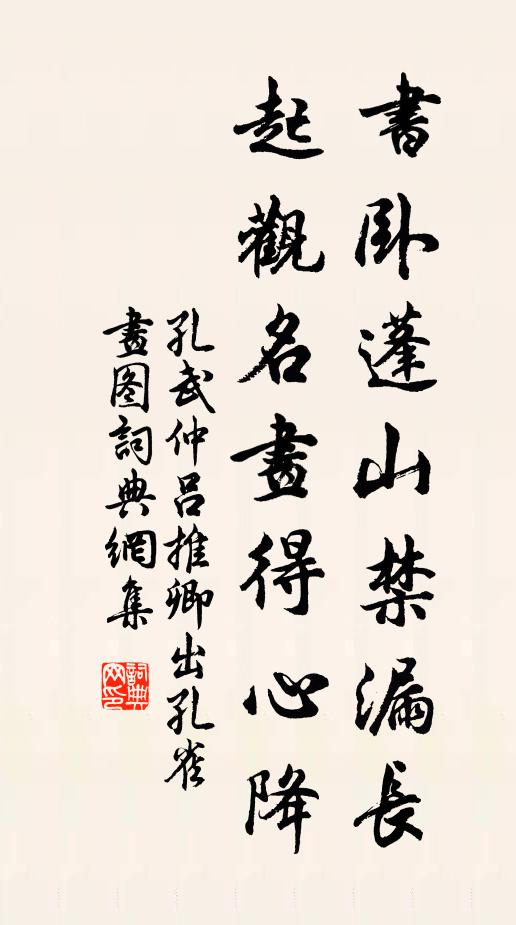 書卧蓬山禁漏長
起觀名畫得心降
孔武仲呂推卿出孔雀
畫图詞典網集
詞典
网印